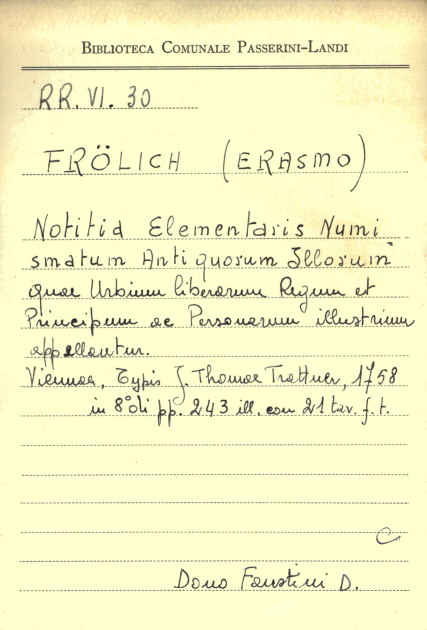 BIBLIOTECA COMUNALE PASSERINI-LANDI
RR. VI. 30
FRÖLICH (ERASMO)
Notitia Elementaris Numi
smatum Antiquorum Illorum
quae Urbium liberarum Regum et
Principum ac Personarum illustrium
appellantur.
Viennae, Typis J. Thomae Trattner, 1758
in 8° di pp. 243 ill. con 21 tav. f. t.
C
Dono Faustini D.